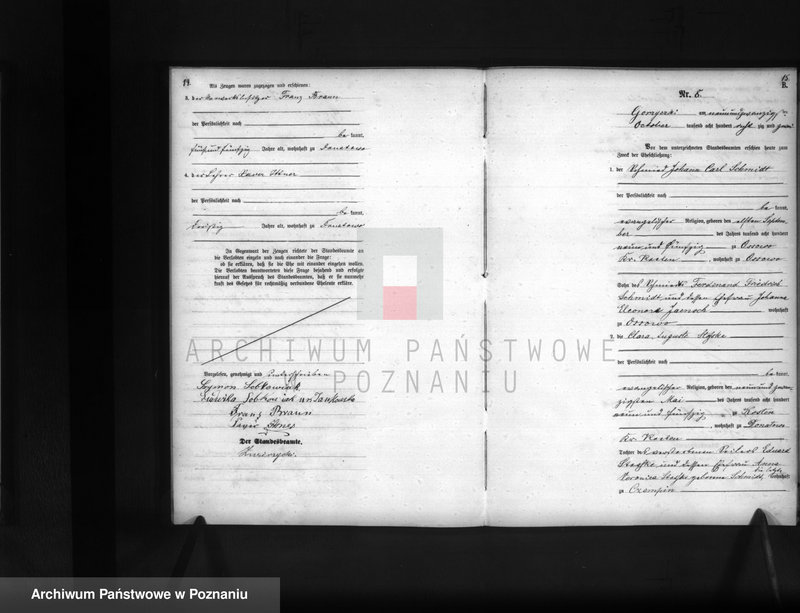 14.
Als Zeugen waren zugezogen und erschienen:
3. der Franz Braun
der Persönlichkeit nach
be kannt,
fünfundfünfzig Jahre alt, wohnhaft zu Donatowo
4. der Lehrer Xaver
der Persönlichkeit nach
be kannt,
dreißig Jahre alt, wohnhaft zu Donatowo
In Gegenwart der Zeugen richtete der Standesbeamte an
die Verlobten einzeln und nach einander die Frage:
ob sie erklären, daß sie die Ehe mit einander eingehen wollen.
Die Verlobten beantworteten diese Frage bejahend und erfolgte
hierauf der Ausspruch des Standesbeamten, daß er sie nunmehr
kraft des Gesetzes für rechtmäßig verbundene Eheleute erkläre.
Vorgelesen, genehmigt und unterschrieben
Szymon Sobkowiak
Ludwika Sobkowiak
Franz Braun
Der Standesbeamte.
15.
B.
Nr. 6.
Gorzyczki am neunundzwanzigsten
October tausend acht hundert acht zig und zwei
Vor dem unterzeichneten Standesbeamten erschien heute zum
Zweck der Eheschließung:
1. der Schmied Johann Carl Schmidt
der Persönlichkeit nach
be kannt,
evangelischer Religion, geboren den elften Septem
ber des Jahres tausend acht hundert
neun und fünfzig zu Ossowo
Kr. Kosten, wohnhaft zu Ossowo
Sohn des Schmiedts Ferdinand Friedrich
Schmidt und dessen Ehefrau Johanna
Eleonore Jaensch wohnhaft
zu Ossowo
2. die Clara Auguste
der Persönlichkeit nach
be kannt,
evangelischer Religion, geboren den neun und zwan
zigsten Mai des Jahres tausend acht hundert
neun und fünfzig zu Kosten
, wohnhaft zu Donatowo
Kr. Kosten
Tochter des verstorbenen Eduard
und dessen Ehefrau Anna
Veronica geborene Schmidt, wohnhaft
zu Czempin
ARCHIWUM PAŃSTWOWE
POZNANIU
Archiwum Państwowe w Poznaniu